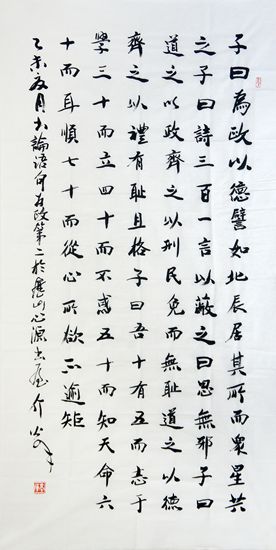 子曰為政以德譬如北辰居其所而衆星共
之子曰詩三百一言以蔽之曰思無邪子曰
道之以政齊之以刑民免而無耻道之以德
齊之以禮有耻且格子曰吾十有五而志于
學三十而立四十而不惑五十而知天命六
十而耳順七十而從心所欲不逾矩
乙未夏月书論语句为政第二於心源书屋介